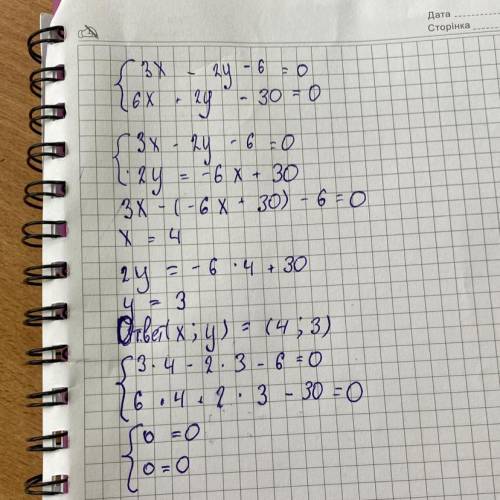 Дата
Сторінка
3x - 2y - 6 = 0
6x + 2y - 30 = 0
3x - 2y - 6 = 0
2y = -6x + 30
3x - (-6x + 30) - 6 = 0
x = 4
2y = -6 · 4 + 30
y = 3
Ответ(x ; y) = (4 ; 3)
3 · 4 - 2 · 3 - 6 = 0
6 · 4 + 2 · 3 - 30 = 0
0 = 0
0 = 0